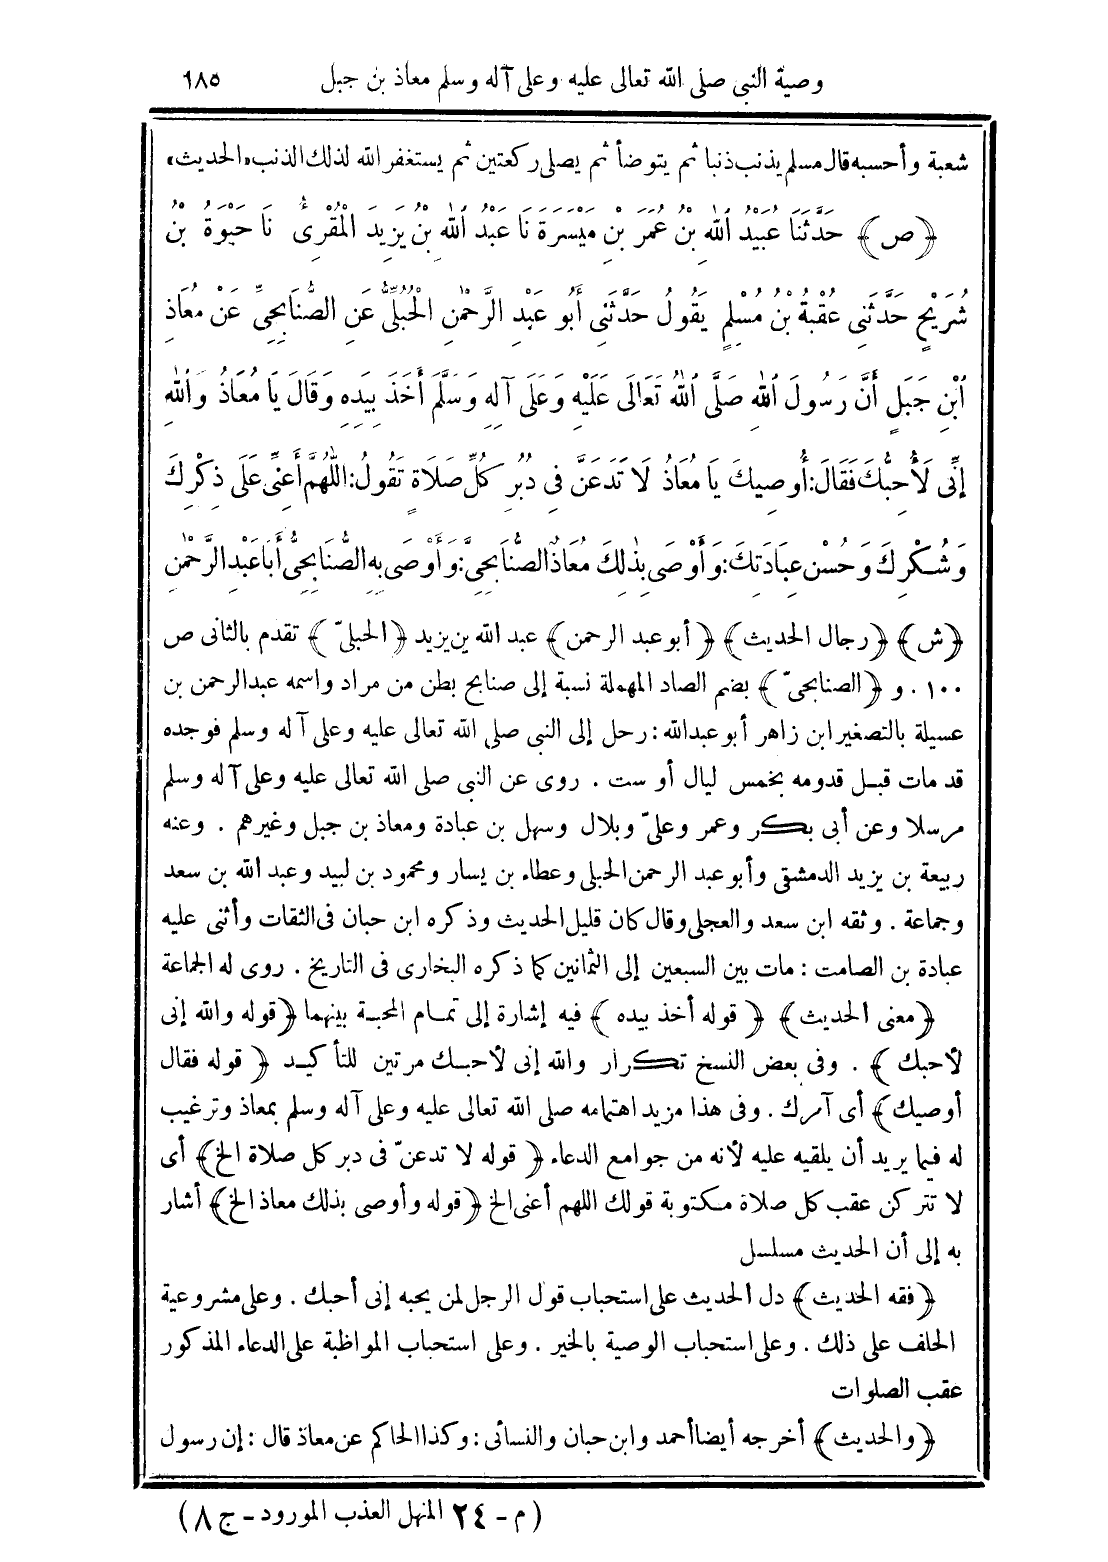 وصية النبى صلى الله تعالى عليه وعلى آله وسلم معاذ بن جبل ١٨٥
شعبة وأحسبه قال مسلم يذنب ذنبا ثم يتوضأ ثم يصلى ركعتين ثم يستغفر الله لذلك الذنب «الحديث»
﴿ص﴾ حَدَّثَنَا عُبَيْدُ اللهِ بْنُ عُمَرَ بْنِ مَيْسَرَةَ نَا عَبْدُ اللهِ بْنُ يَزِيدَ الْمُقْرِئُ نَا حَيْوَةُ بْنُ
شُرَيْحٍ حَدَّثَنِى عُقْبَةُ بْنُ مُسْلِمٍ يَقُولُ حَدَّثَنِى أَبُو عَبْدِ الرَّحْمٰنِ الْحُبُلِىُّ عَنِ الصُّنَابِحِىِّ عَنْ مُعَاذِ
ابْنِ جَبَلٍ أَنَّ رَسُولَ اللهِ صَلَّى اللهُ تَعَالَى عَلَيْهِ وَعَلَى آلِهِ وَسَلَّمَ أَخَذَ بِيَدِهِ وَقَالَ يَا مُعَاذُ وَاللهِ
إِنِّى لَأُحِبُّكَ فَقَالَ: أُوصِيكَ يَا مُعَاذُ لَا تَدَعَنَّ فِى دُبُرِ كُلِّ صَلَاةٍ تَقُولُ: اللَّهُمَّ أَعِنِّى عَلَى ذِكْرِكَ
وَشُكْرِكَ وَحُسْنِ عِبَادَتِكَ: وَأَوْصَى بِذٰلِكَ مُعَاذٌ الصُّنَابِحِىَّ: وَأَوْصَى بِهِ الصُّنَابِحِىُّ أَبَا عَبْدِ الرَّحْمٰنِ
﴿ش﴾ ﴿رجال الحديث﴾ ﴿أبو عبد الرحمن﴾ عبد الله بن يزيد ﴿الحبلىّ﴾ تقدم بالثانى ص
١٠٠ . و ﴿الصنابحىّ﴾ بضم الصاد المهملة نسبة إلى صنابح بطن من مراد واسمه عبدالرحمن بن
عسيلة بالتصغير ابن زاهر أبو عبدالله : رحل إلى النبى صلى الله تعالى عليه وعلى آله وسلم فوجده
قد مات قبل قدومه بخمس ليال أو ست . روى عن النبى صلى الله تعالى عليه وعلى آله وسلم
مرسلا وعن أبى بكر وعمر وعلىّ وبلال وسهل بن عبادة ومعاذ بن جبل وغيرهم . وعنه
ربيعة بن يزيد الدمشقى وأبو عبد الرحمن الحبلى وعطاء بن يسار ومحمود بن لبيد وعبد الله بن سعد
وجماعة . وثقه ابن سعد والعجلى وقال كان قليل الحديث وذكره ابن حبان فى الثقات وأثنى عليه
عبادة بن الصامت : مات بين السبعين إلى الثمانين كما ذكره البخارى فى التاريخ . روى له الجماعة
﴿معنى الحديث﴾ ﴿قوله أخذ بيده﴾ فيه إشارة إلى تمام المحبة بينهما ﴿قوله والله إنى
لأحبك﴾ . وفى بعض النسخ تكرار والله إنى لأحبك مرتين للتأكيد ﴿قوله فقال
أوصيك﴾ أى آمرك . وفى هذا مزيد اهتمامه صلى الله تعالى عليه وعلى آله وسلم بمعاذ وترغيب
له فيما يريد أن يلقيه عليه لأنه من جوامع الدعاء ﴿قوله لا تدعنّ فى دبر كل صلاة الخ﴾ أى
لا تتركن عقب كل صلاة مكتوبة قولك اللهم أعنى الخ ﴿قوله وأوصى بذلك معاذ الخ﴾ أشار
به إلى أن الحديث مسلسل
﴿فقه الحديث﴾ دل الحديث على استحباب قول الرجل لمن يحبه إنى أحبك . وعلى مشروعية
الحلف على ذلك . وعلى استحباب الوصية بالخير . وعلى استحباب المواظبة على الدعاء المذكور
عقب الصلوات
﴿والحديث﴾ أخرجه أيضا أحمد وابن حبان والنسائى : وكذا الحاكم عن معاذ قال : إن رسول
(م - ٢٤ المنهل العذب المورود - ج ٨)